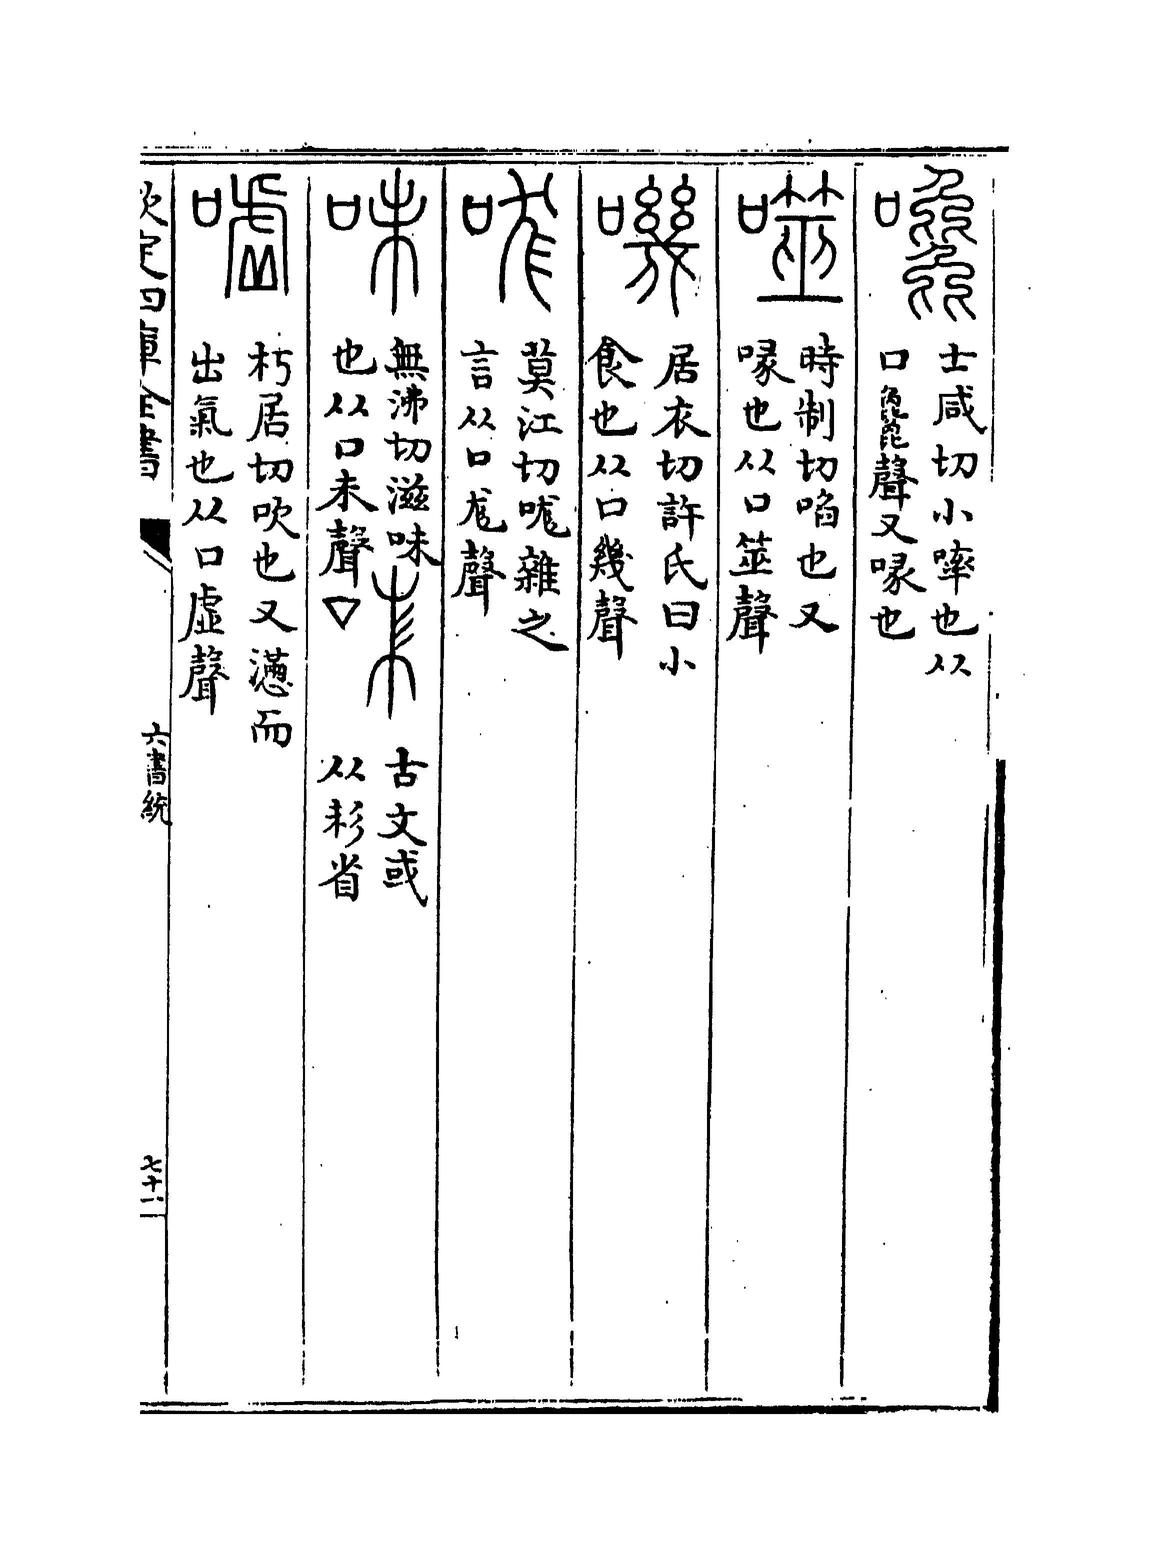 嚵
士咸切小啐也从
口毚聲又喙也
噬
時制切啗也又
喙也从口筮聲
嘰
居衣切許氏曰小
食也从口幾聲
咙
莫江切哤雜之
言从口尨聲
味
無沸切滋味
也从口未聲▽
古文或
从耏省
嘘
朽居切吹也又懣而
出氣也从口虛聲
欽定四庫全書
六書統
七十一